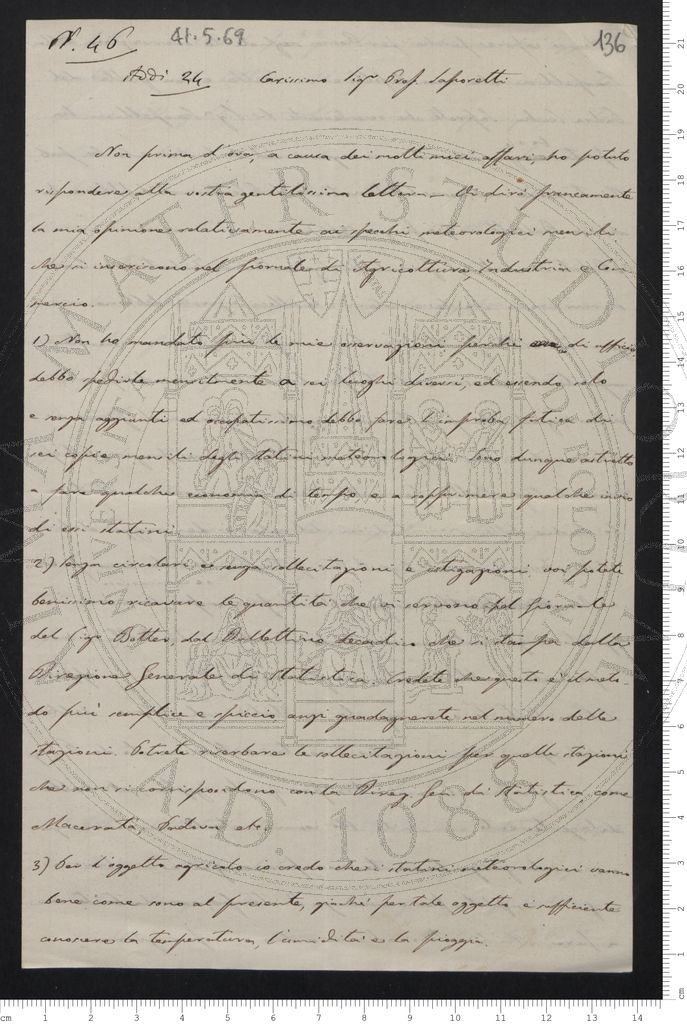 N. 46 41.5.69 136
Addì 24 Carissimo Sigr Prof. Saporetti
Non prima d'ora, a causa dei molti miei affari, ho potuto
rispondere alla vostra gentilissima lettera. Vi dirò francamente
la mia opinione relativamente ai specchi meteorologici mensili
che si inseriscono nel giornale di Agricoltura, Industria e Com-
mercio.
1) Non ho mandato più le mie osservazioni perché di ufficio
debbo spedirle mensilmente a sei luoghi diversi, ed essendo solo
e senza aggiunti ed occupatissimo debbo fare l'improba fatica di
sei copie mensili degli statini meteorologici. Sono dunque astretto
a fare qualche economia di tempo e a sopprimere qualche invio
di essi statini.
2) Senza circolari e senza sollecitazioni e istigazioni voi potete
benissimo ricavare le quantità che vi servono pel giornale
del Sigr Botter, dal Bullettino decadico che si stampa dalla
Direzione Generale di Statistica. Credete che questo è il meto-
do più semplice e spiccio anzi guadagnerete nel numero delle
stazioni. Potrete riserbare le sollecitazioni per quelle stazioni
che non si corrispondono con la Direz. Gen. di Statistica come
Macerata, Padova etc.
3) Per l'oggetto agricolo io credo che i statini meteorologici vanno
bene come sono al presente, giaché per tale oggetto è sufficiente
conoscere la temperatura, l'umidità e la pioggia.
ALMA MATER STUDIORUM
A.D. 1088